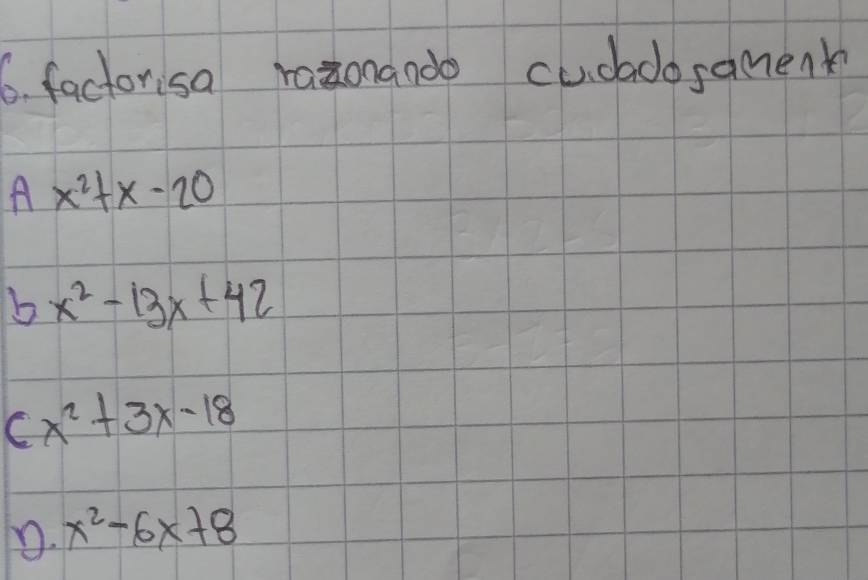 6. factorisa razonando cuidadosament
A x² + x - 20
b x² - 13x + 42
C x² + 3x - 18
D. x² - 6x + 8